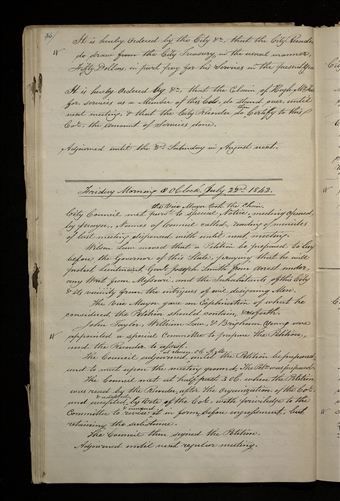 It is hereby Ordered by the City &c, that the City Recorder
do draw from the City Treasury in the usual manner
Fifty Dollars in part pay for his Services in the present year
It is hereby Ordered by &c, that the Claim of Hugh
for services as a Member of this Col. do stand over until
next meeting, & that the City Recorder do then Certify to this
Col. the amount of Services done.
Adjourned until the 2d Saturday in August next.
Friday Morning 8 O'Clock, July 22d 1842.
the Vice Mayor took the Chair
City Council met pursuant to special Notice, meeting opened
by prayer, Names of Council called, reading of minutes
of last meeting dispensed with until next meeting.
Wilson Law moved that a Petition be prepared to lay
before the Governor of this State, praying that he will
protect Lieutenant Genl. Joseph Smith from arrest under
any Writ from Missouri, and the Inhabitants of this City
& its vicinity from the intrigues of evil designing Men.
The Vice Mayor gave an Explanation of what he
considered the Petition should contain,
John Taylor, William Law, & Brigham Young were
appointed a special Committee to prepare the Petition,
and the Recorder to assist.
The Council adjourned until the Petition be prepared
and to meet upon the meeting ground,
The Council met at half past 3 o'C. when the Petition
was read by the Recorder, after the organization of the Col.
and accepted, by Vote of the Col. with privilege to the
Committee to revise it in form, before engrossment, but
retaining the substance.
The Council then signed the Petition.
Adjourned until next regular meeting.